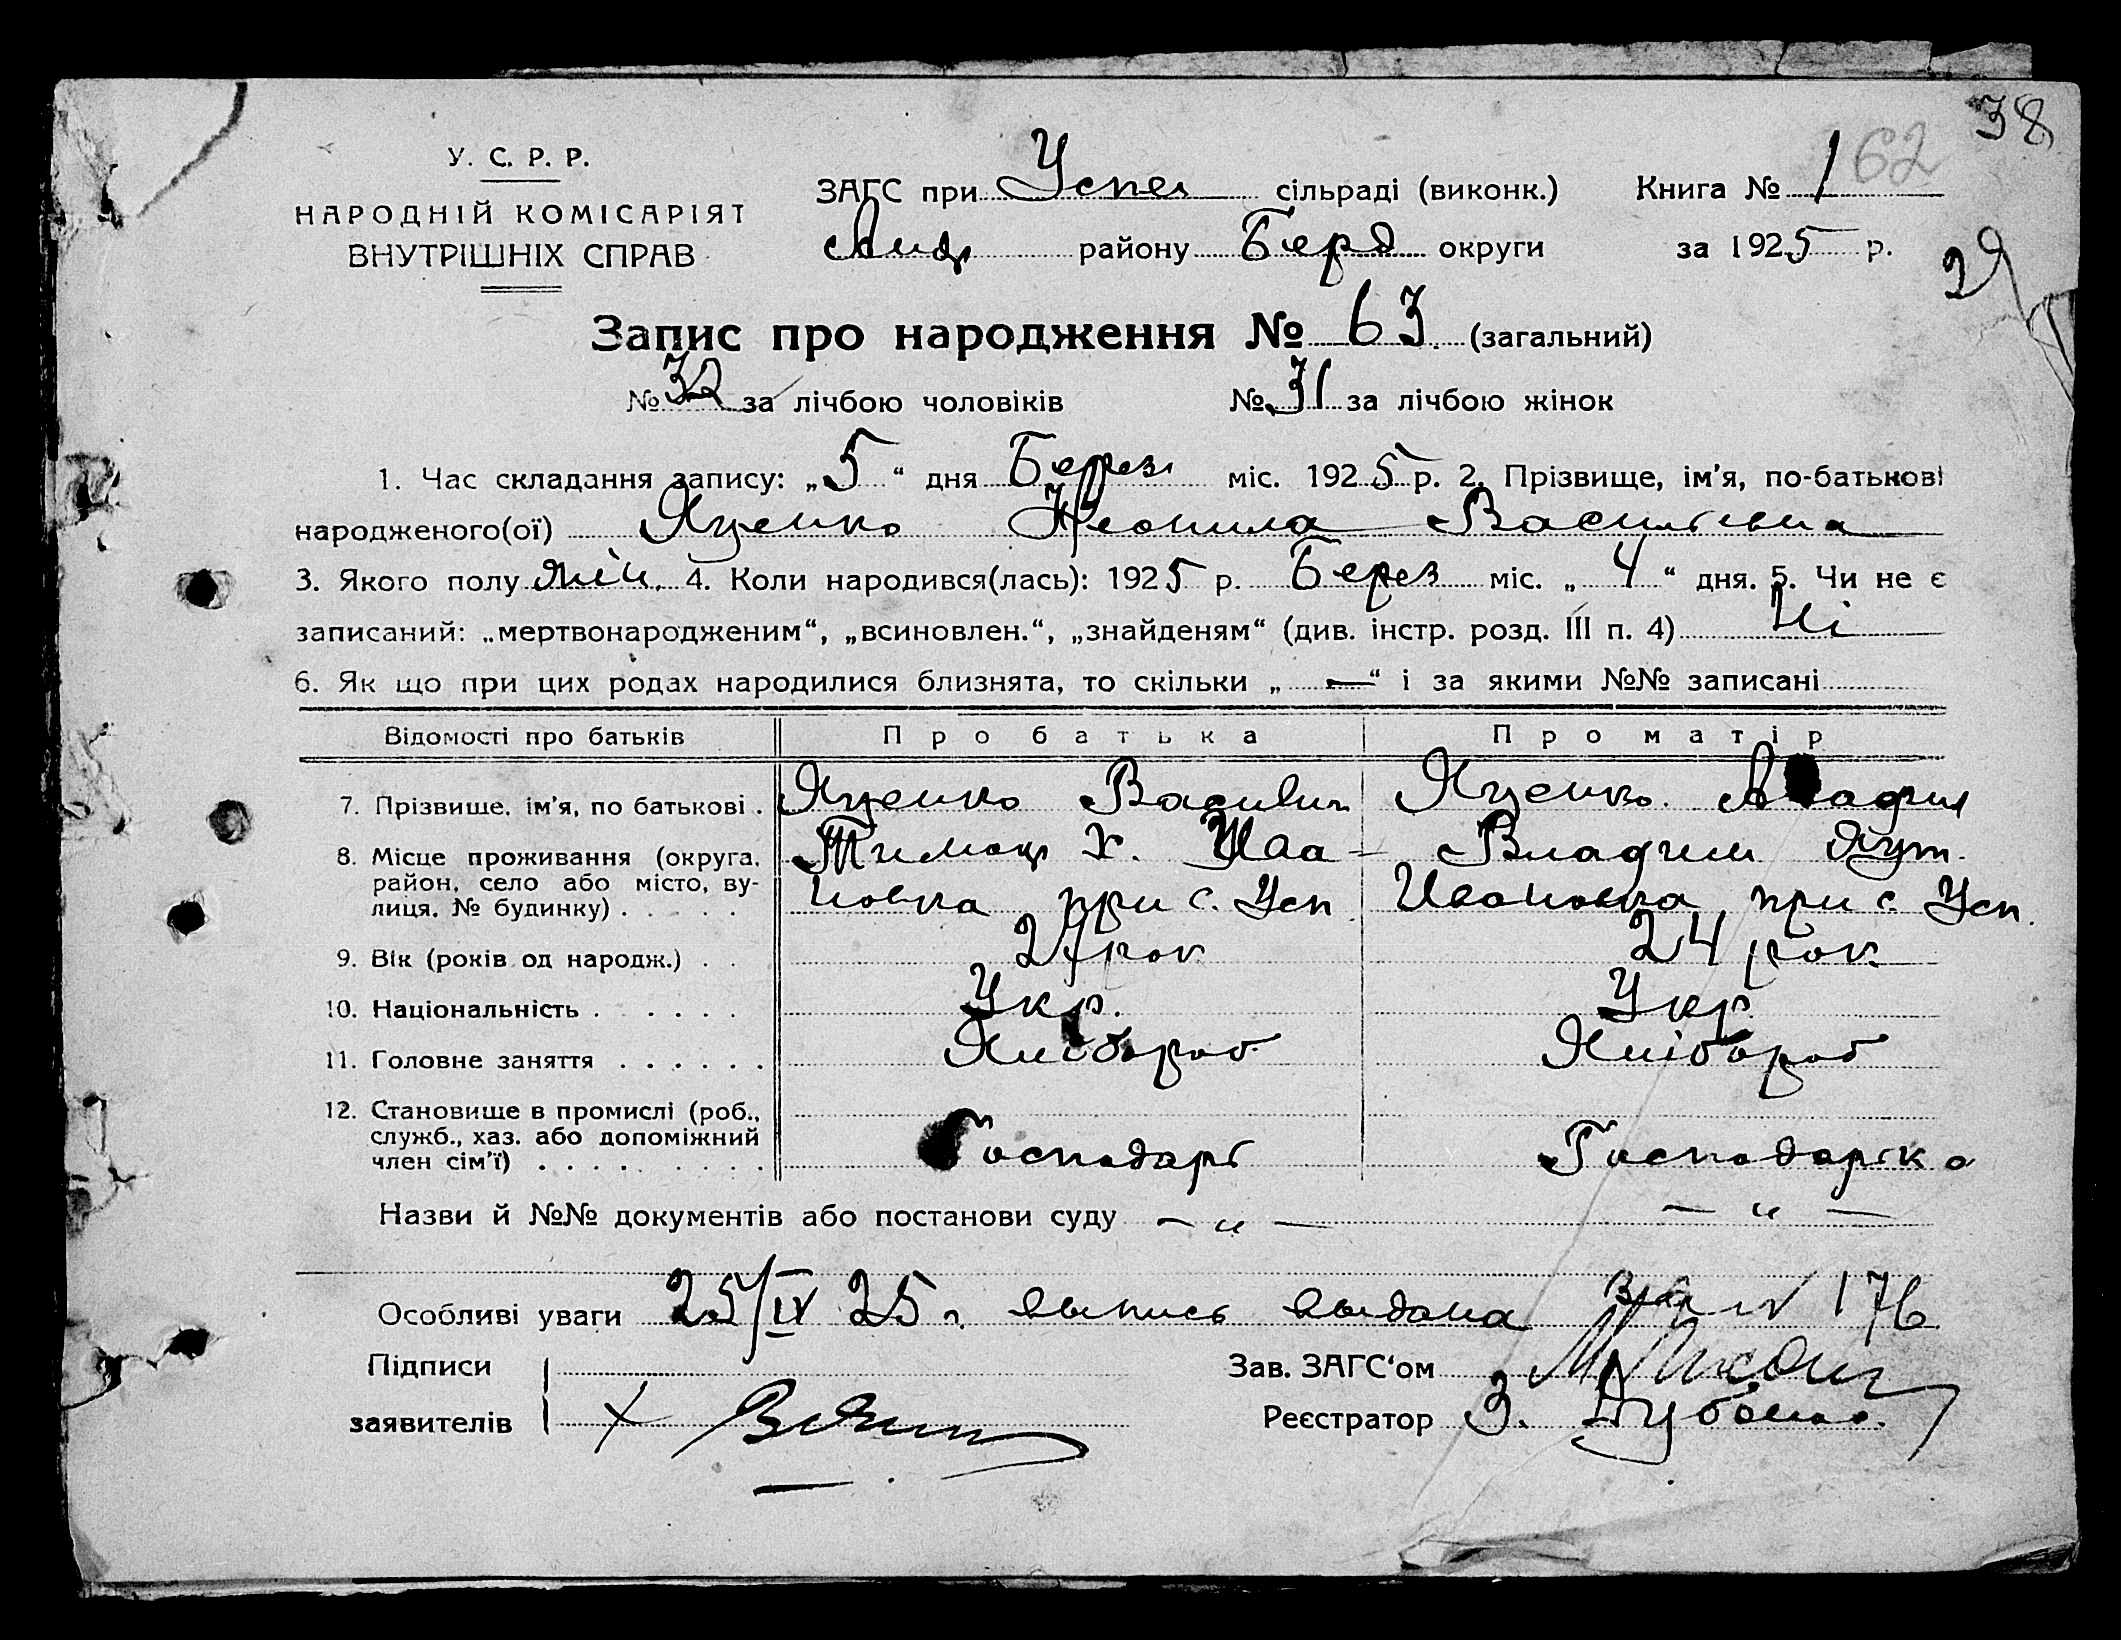 38
У. С. Р. Р.
ЗАГС при Успен сільраді (виконк.) Книга № 1 62
НАРОДНІЙ КОМІСАРІЯТ
ВНУТРІШНІХ СПРАВ
району Берд округи за 1925 р.
Запис про народження № 63 (загальний)
№ 32 за лічбою чоловіків № 31 за лічбою жінок
1. Час складання запису: „5“ дня Березн міс. 1925 р. 2. Прізвище, ім’я, по-батькові
народженого(ої) Яценко Неонила Васильевна
3. Якого полу жін. 4. Коли народився(лась): 1925 р. Берез міс. „4“ дня. 5. Чи не є
записаний: „мертвонародженим“, „всиновлен.“, „знайденям“ (див. інстр. розд. III п. 4) Ні
6. Як що при цих родах народилися близнята, то скільки „—“ і за якими №№ записані
Відомості про батьків Про батька Про матір
7. Прізвище, ім’я, по батькові . Яценко Яценко
8. Місце проживання (округа, х. Ива- Владим
район, село або місто, ву- новка при с. Усп Ивановка при с. Усп.
лиця, № будинку) . . . . .
9. Вік (років од народж.) . . рок 24 рок
10. Національність . . . . . . Укр. Укр
11. Головне заняття . . . . . . Хлібороб Хлібороб
12. Становище в промислі (роб.,
служб., хаз. або допоміжний Господарь Господарька
член сім’ї) . . . . . . . . .
Назви й №№ документів або постанови суду — „ — — „ —
Особливі уваги 25/IV 25 г. выпись выдана № 176
Підписи Зав. ЗАГС‘ом
заявителів Х Реєстратор З. Дубенко